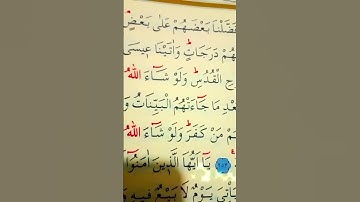 فَضَّلْنَا بَعْضَهُمْ عَلٰى بَعْضٍۢ
هُمْ دَرَجَاتٍۜ وَاٰتَيْنَا عٖيسَى
حِ الْقُدُسِۜ وَلَوْ شَٓاءَ اللّٰهُ
عْدِ مَا جَٓاءَتْهُمُ الْبَيِّنَاتُ وَ
هُمْ مَنْ كَفَرَۜ وَلَوْ شَٓاءَ اللّٰهُ
يَٓا اَيُّهَا الَّذٖينَ اٰمَنُٓوا
يَأْتِيَ يَوْمٌ لَا بَيْعٌ فٖيهِ وَ